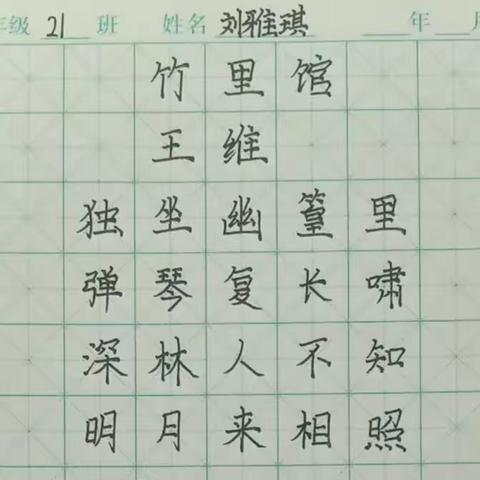 年级 21 班 姓名 刘雅琪 年 月
竹里馆
王维
独坐幽篁里
弹琴复长啸
深林人不知
明月来相照